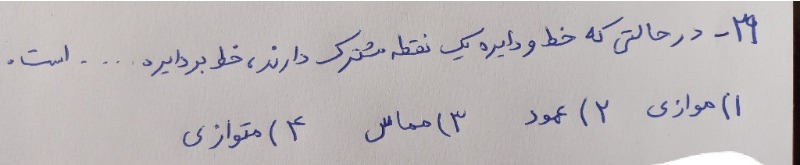 ۲۹- در حالتی که خط و دایره یک نقطه مشترک دارند، خط بر دایره ..... است.
۱) موازی ۲) عمود ۳) مماس ۴) متوازی